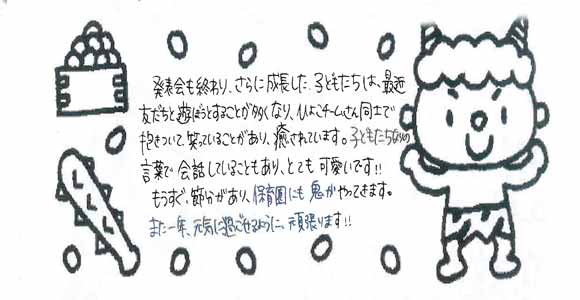 発表会も終わり、さらに成長した子どもたちは、最近
友だちと遊ぼうとすることが多くなり、ひよこチームさん同士で
抱きついて笑っていることがあり、癒されています。子どもたちなりの
言葉で会話していることもあり、とても可愛いです!!
もうすぐ、節分があり、保育園にも鬼がやってきます。
また一年、元気に過ごせるように、頑張ります!!